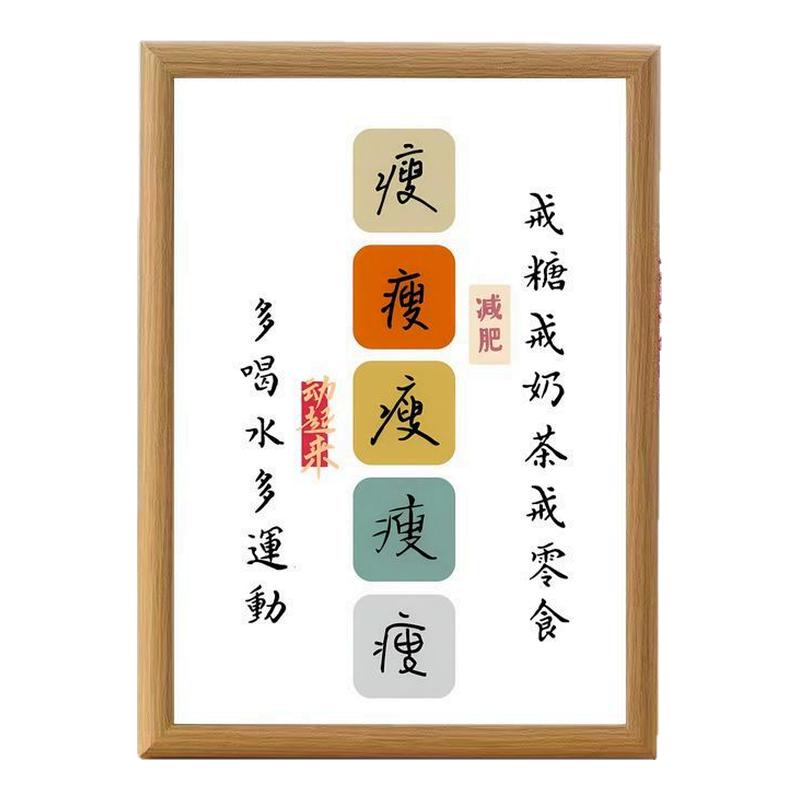 戒糖戒奶茶戒零食
減肥
瘦
瘦
瘦
瘦
瘦
动起来
多喝水多運動